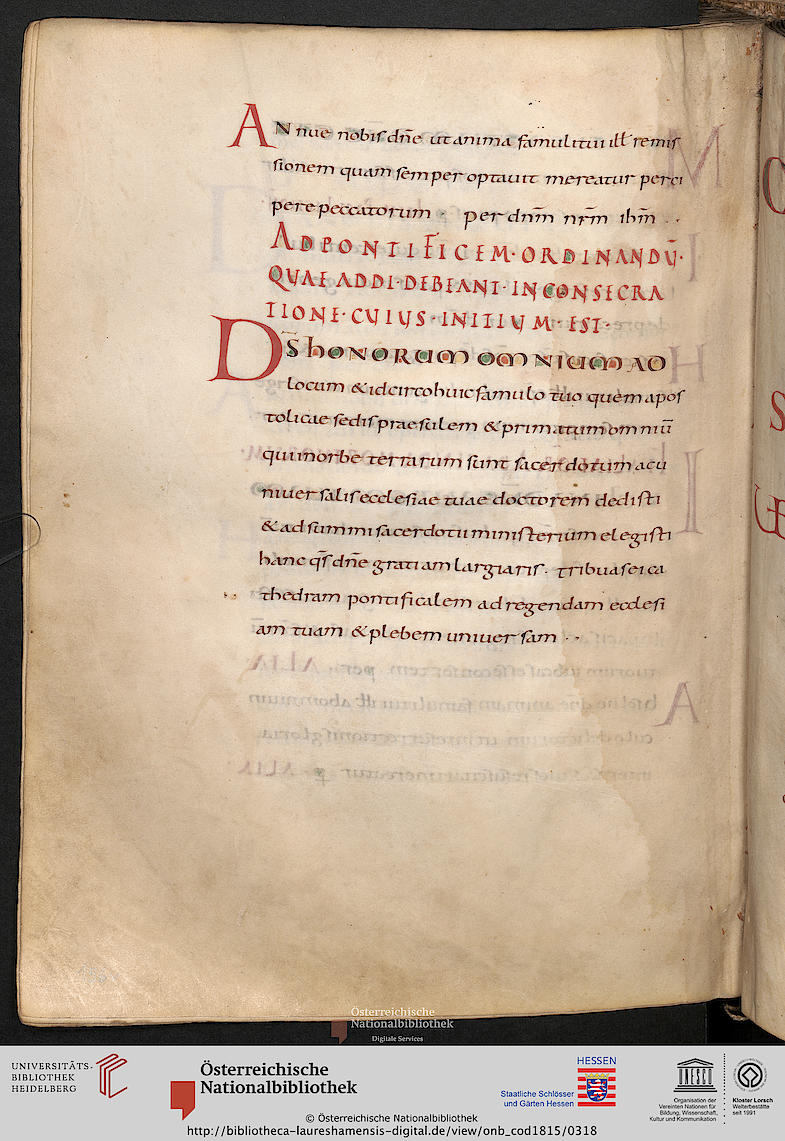 AN nue nobis dñe ut anima famuli tui ill̅ remis
sionem quam semper optauit mereatur perci
pere peccatorum · per dnm̅ nrm̅ ihm̅ ··
AD PONTIFICEM · ORDINANDŪ ·
QUAE ADDI · DEBEANT · IN CONSECRA
TIONE · CUIUS · INITIUM · EST ·
DS̅ hONORUM OMNIUM AD
locum & idcirco huic famulo tuo quem apos
tolicae sedis praesulem & primatum omniū
qui in orbe terrarum sunt sacerdotum ac u
niuersalis ecclesiae tuae doctorem dedisti
& ad summi sacerdotii ministerium elegisti
hanc qs̅ dñe gratiam largiaris · tribuas ei ca
thedram pontificalem ad regendam ecclesi
am tuam & plebem uniuersam ··
Österreichische
Nationalbibliothek
Digitale Services
UNIVERSITÄTS-
BIBLIOTHEK
HEIDELBERG
Österreichische
Nationalbibliothek
HESSEN
Staatliche Schlösser
und Gärten Hessen
UNESCO
Organisation der
Vereinten Nationen für
Bildung, Wissenschaft,
Kultur und Kommunikation
Kloster Lorsch
Welterbestätte
seit 1991
© Österreichische Nationalbibliothek
http://bibliotheca-laureshamensis-digital.de/view/onb_cod1815/0318